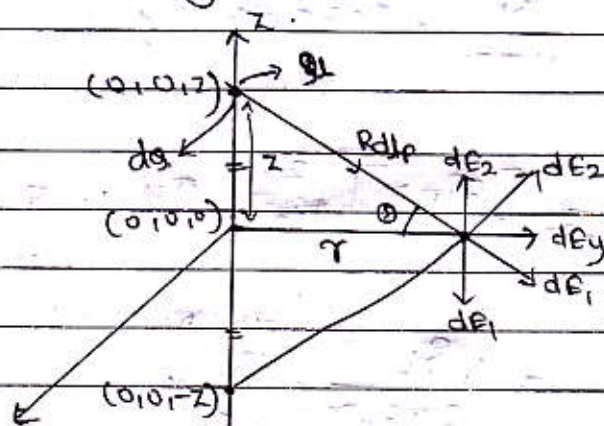 z
(0,0,z)
ρL
dQ
z
Rdlp
dE2
dE2
(0,0,0)
θ
r
dEy
dE1
dE1
(0,0,-z)